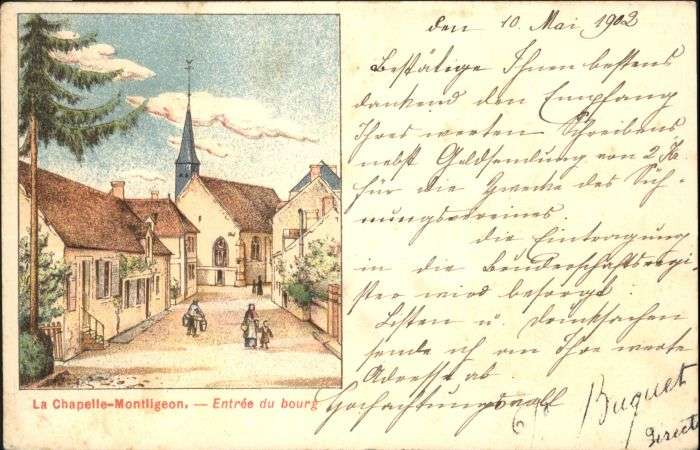 den 10. Mai 1902
Bestätige Ihnen bestens
dankend den Empfang
Ihres werten Schreibens
nebst Geldsendung von 2 K
für die Zwecke des Süh-
nungsvereines.
die Eintragung
in die Bruderschaftsregi
ster wird besorgt.
Listen u. Drucksachen
sende ich an Ihre werte
Adresse ab
Hochachtungsvoll
Buguet
Direct
La Chapelle-Montligeon. — Entrée du bourg